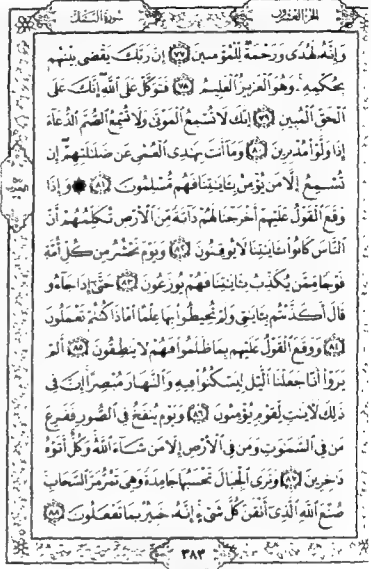 الجزء العشرون سورة النمل
وَإِنَّهُ لَهُدًى وَرَحْمَةٌ لِّلْمُؤْمِنِينَ ﴿٧٧﴾ إِنَّ رَبَّكَ يَقْضِى بَيْنَهُم
بِحُكْمِهِ وَهُوَ الْعَزِيزُ الْعَلِيمُ ﴿٧٨﴾ فَتَوَكَّلْ عَلَى اللَّهِ إِنَّكَ عَلَى
الْحَقِّ الْمُبِينِ ﴿٧٩﴾ إِنَّكَ لَا تُسْمِعُ الْمَوْتَى وَلَا تُسْمِعُ الصُّمَّ الدُّعَاءَ
إِذَا وَلَّوْا مُدْبِرِينَ ﴿٨٠﴾ وَمَا أَنتَ بِهَادِى الْعُمْىِ عَن ضَلَالَتِهِمْ إِن
تُسْمِعُ إِلَّا مَن يُؤْمِنُ بِآيَاتِنَا فَهُم مُّسْلِمُونَ ﴿٨١﴾ وَإِذَا
وَقَعَ الْقَوْلُ عَلَيْهِمْ أَخْرَجْنَا لَهُمْ دَابَّةً مِّنَ الْأَرْضِ تُكَلِّمُهُمْ أَنَّ
النَّاسَ كَانُوا بِآيَاتِنَا لَا يُوقِنُونَ ﴿٨٢﴾ وَيَوْمَ نَحْشُرُ مِن كُلِّ أُمَّةٍ
فَوْجًا مِّمَّن يُكَذِّبُ بِآيَاتِنَا فَهُمْ يُوزَعُونَ ﴿٨٣﴾ حَتَّى إِذَا جَاءُو
قَالَ أَكَذَّبْتُم بِآيَاتِى وَلَمْ تُحِيطُوا بِهَا عِلْمًا أَمَّاذَا كُنتُمْ تَعْمَلُونَ
﴿٨٤﴾ وَوَقَعَ الْقَوْلُ عَلَيْهِم بِمَا ظَلَمُوا فَهُمْ لَا يَنطِقُونَ ﴿٨٥﴾ أَلَمْ
يَرَوْا أَنَّا جَعَلْنَا الَّيْلَ لِيَسْكُنُوا فِيهِ وَالنَّهَارَ مُبْصِرًا إِنَّ فِى
ذَلِكَ لَآيَاتٍ لِّقَوْمٍ يُؤْمِنُونَ ﴿٨٦﴾ وَيَوْمَ يُنفَخُ فِى الصُّورِ فَفَزِعَ
مَن فِى السَّمَوَتِ وَمَن فِى الْأَرْضِ إِلَّا مَن شَاءَ اللَّهُ وَكُلٌّ أَتَوْهُ
دَاخِرِينَ ﴿٨٧﴾ وَتَرَى الْجِبَالَ تَحْسَبُهَا جَامِدَةً وَهِىَ تَمُرُّ مَرَّ السَّحَابِ
صُنْعَ اللَّهِ الَّذِى أَتْقَنَ كُلَّ شَىْءٍ إِنَّهُ خَبِيرٌ بِمَا تَفْعَلُونَ ﴿٨٨﴾
٣٨٣